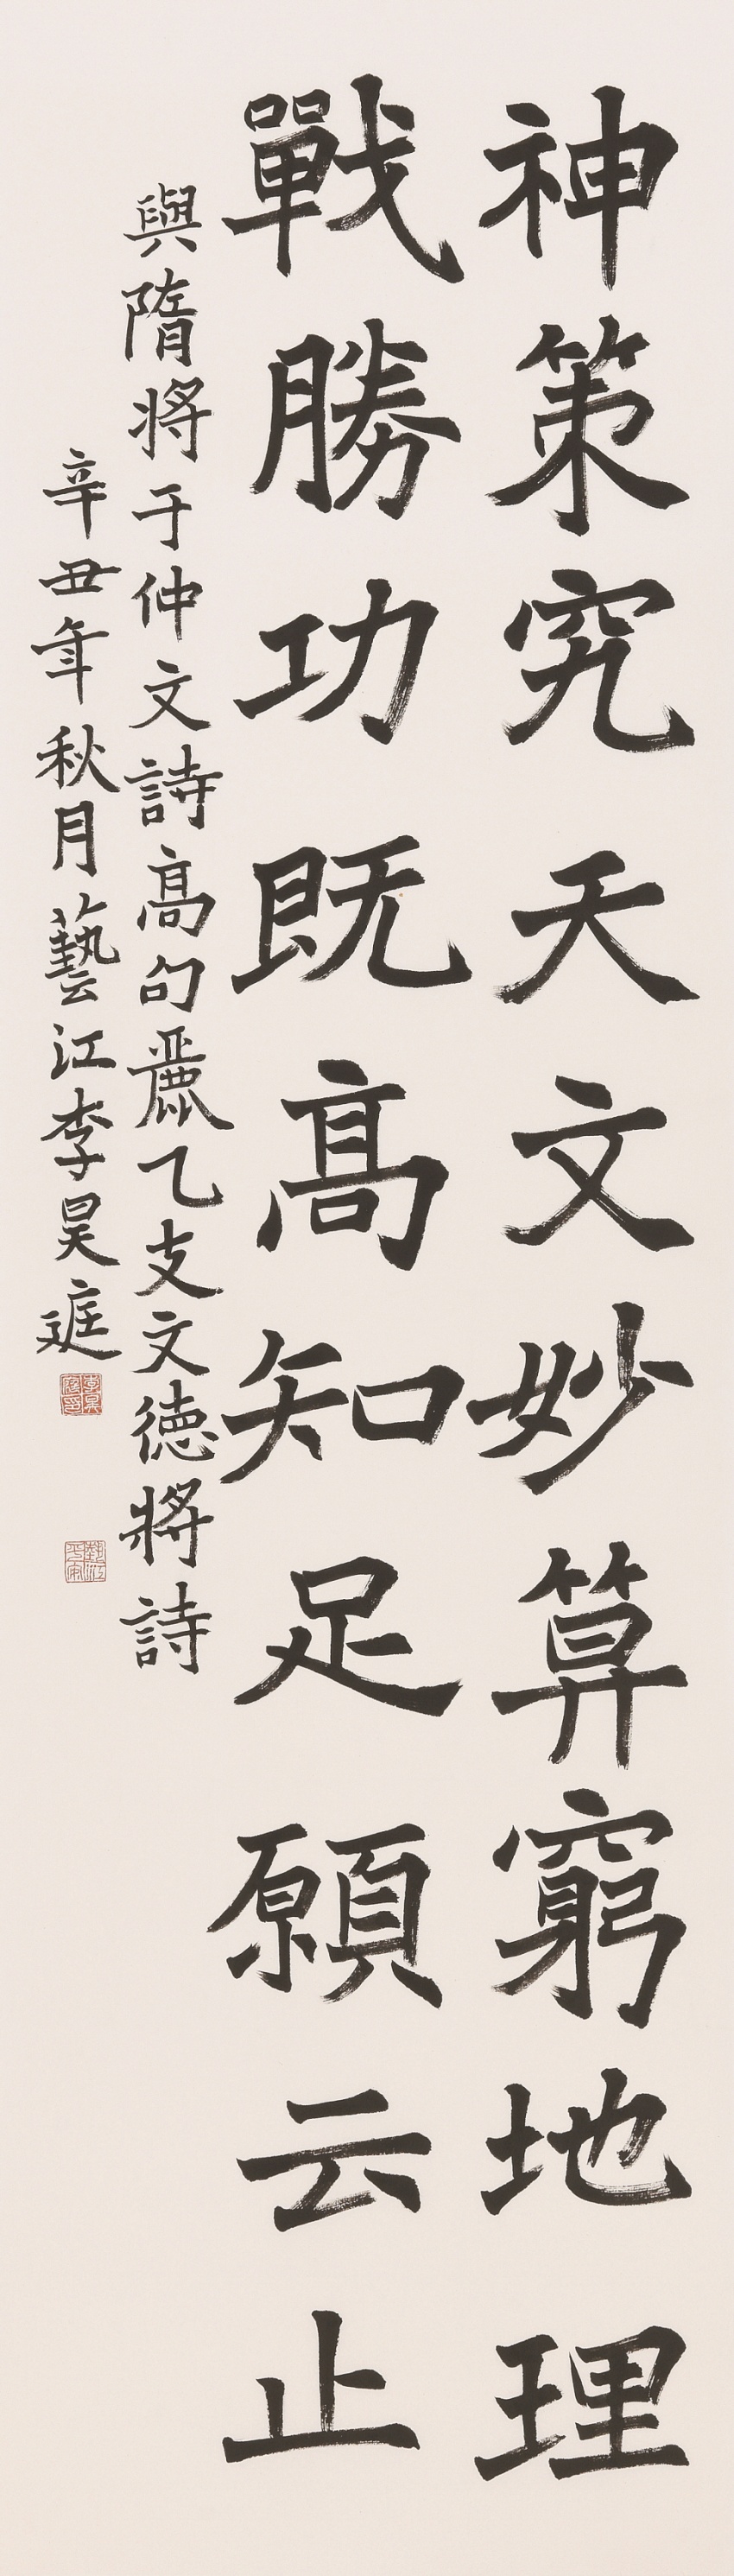 神策究天文妙算窮地理
戰勝功既高知足願云止
與隋将于仲文詩高句麗乙支文德將詩
辛丑年秋月藝江李昊庭